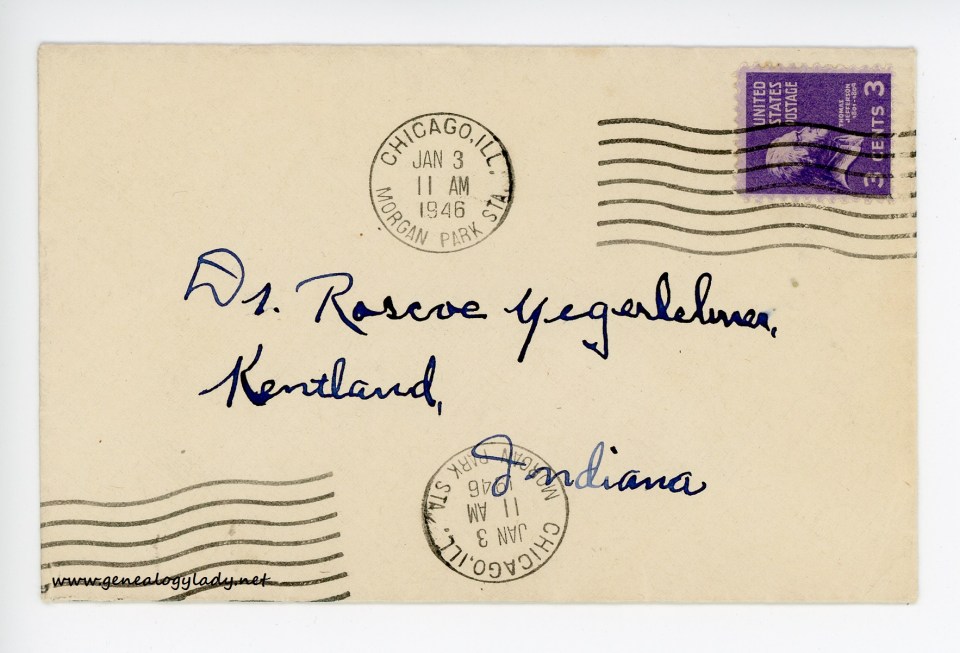 UNITED
STATES
POSTAGE
THOMAS
JEFFERSON
1801-1809
3 CENTS 3
CHICAGO, ILL.
JAN 3
11 AM
1946
MORGAN PARK STA.
Dr. Roscoe Yegerlehner,
Kentland,
Indiana
CHICAGO, ILL.
JAN 3
11 AM
1946
MORGAN PARK STA.
www.genealogylady.net